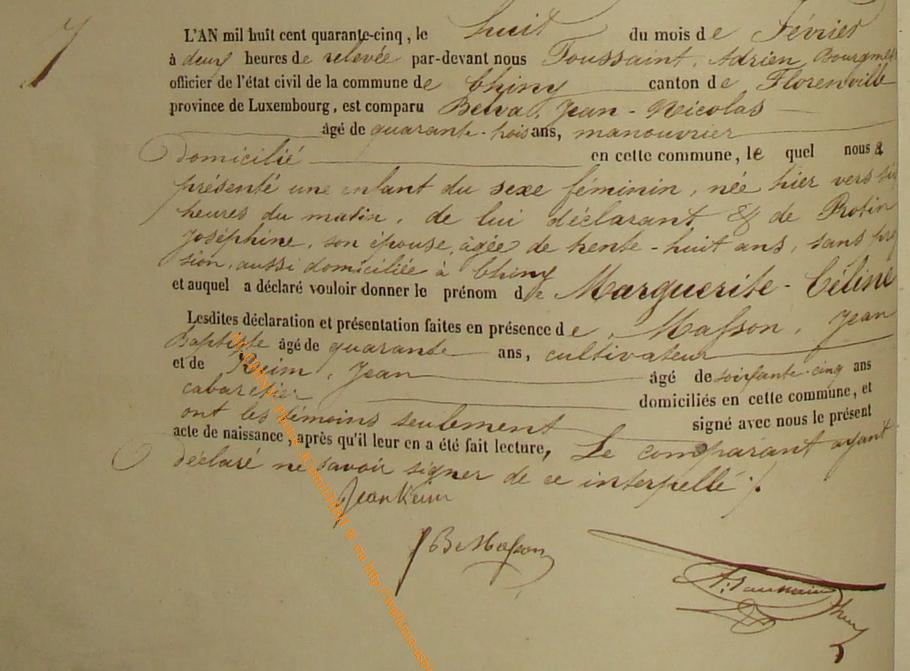 7
L'AN mil huit cent quarante-cinq, le huit du mois de Février
à deux heures de relevée par-devant nous Toussaint, Adrien, Bourgme
officier de l'état civil de la commune de Chiny canton de Florenville
province de Luxembourg, est comparu Belva, Jean-Nicolas
âgé de quarante-trois ans, manouvrier
domicilié en cette commune, le quel nous a
présenté une enfant du sexe féminin, née hier vers six
heures du matin, de lui déclarant & de Robin
Joséphine, son épouse, âgée de trente-huit ans, sans pro
sion, aussi domiciliée à Chiny
et auquel a déclaré vouloir donner le prénom de Marguerite-Céline
Lesdites déclaration et présentation faites en présence de, Masson, Jean
Baptiste âgé de quarante ans, cultivateur
et de Keim, Jean âgé de soixante-cinq ans
cabaretier domiciliés en cette commune, et
ont les témoins seulement signé avec nous le présent
acte de naissance, après qu'il leur en a été fait lecture, Le comparant ayant
déclaré ne savoir signer de ce interpellé ./.
Jean Keim
J B Masson
A. Toussaint